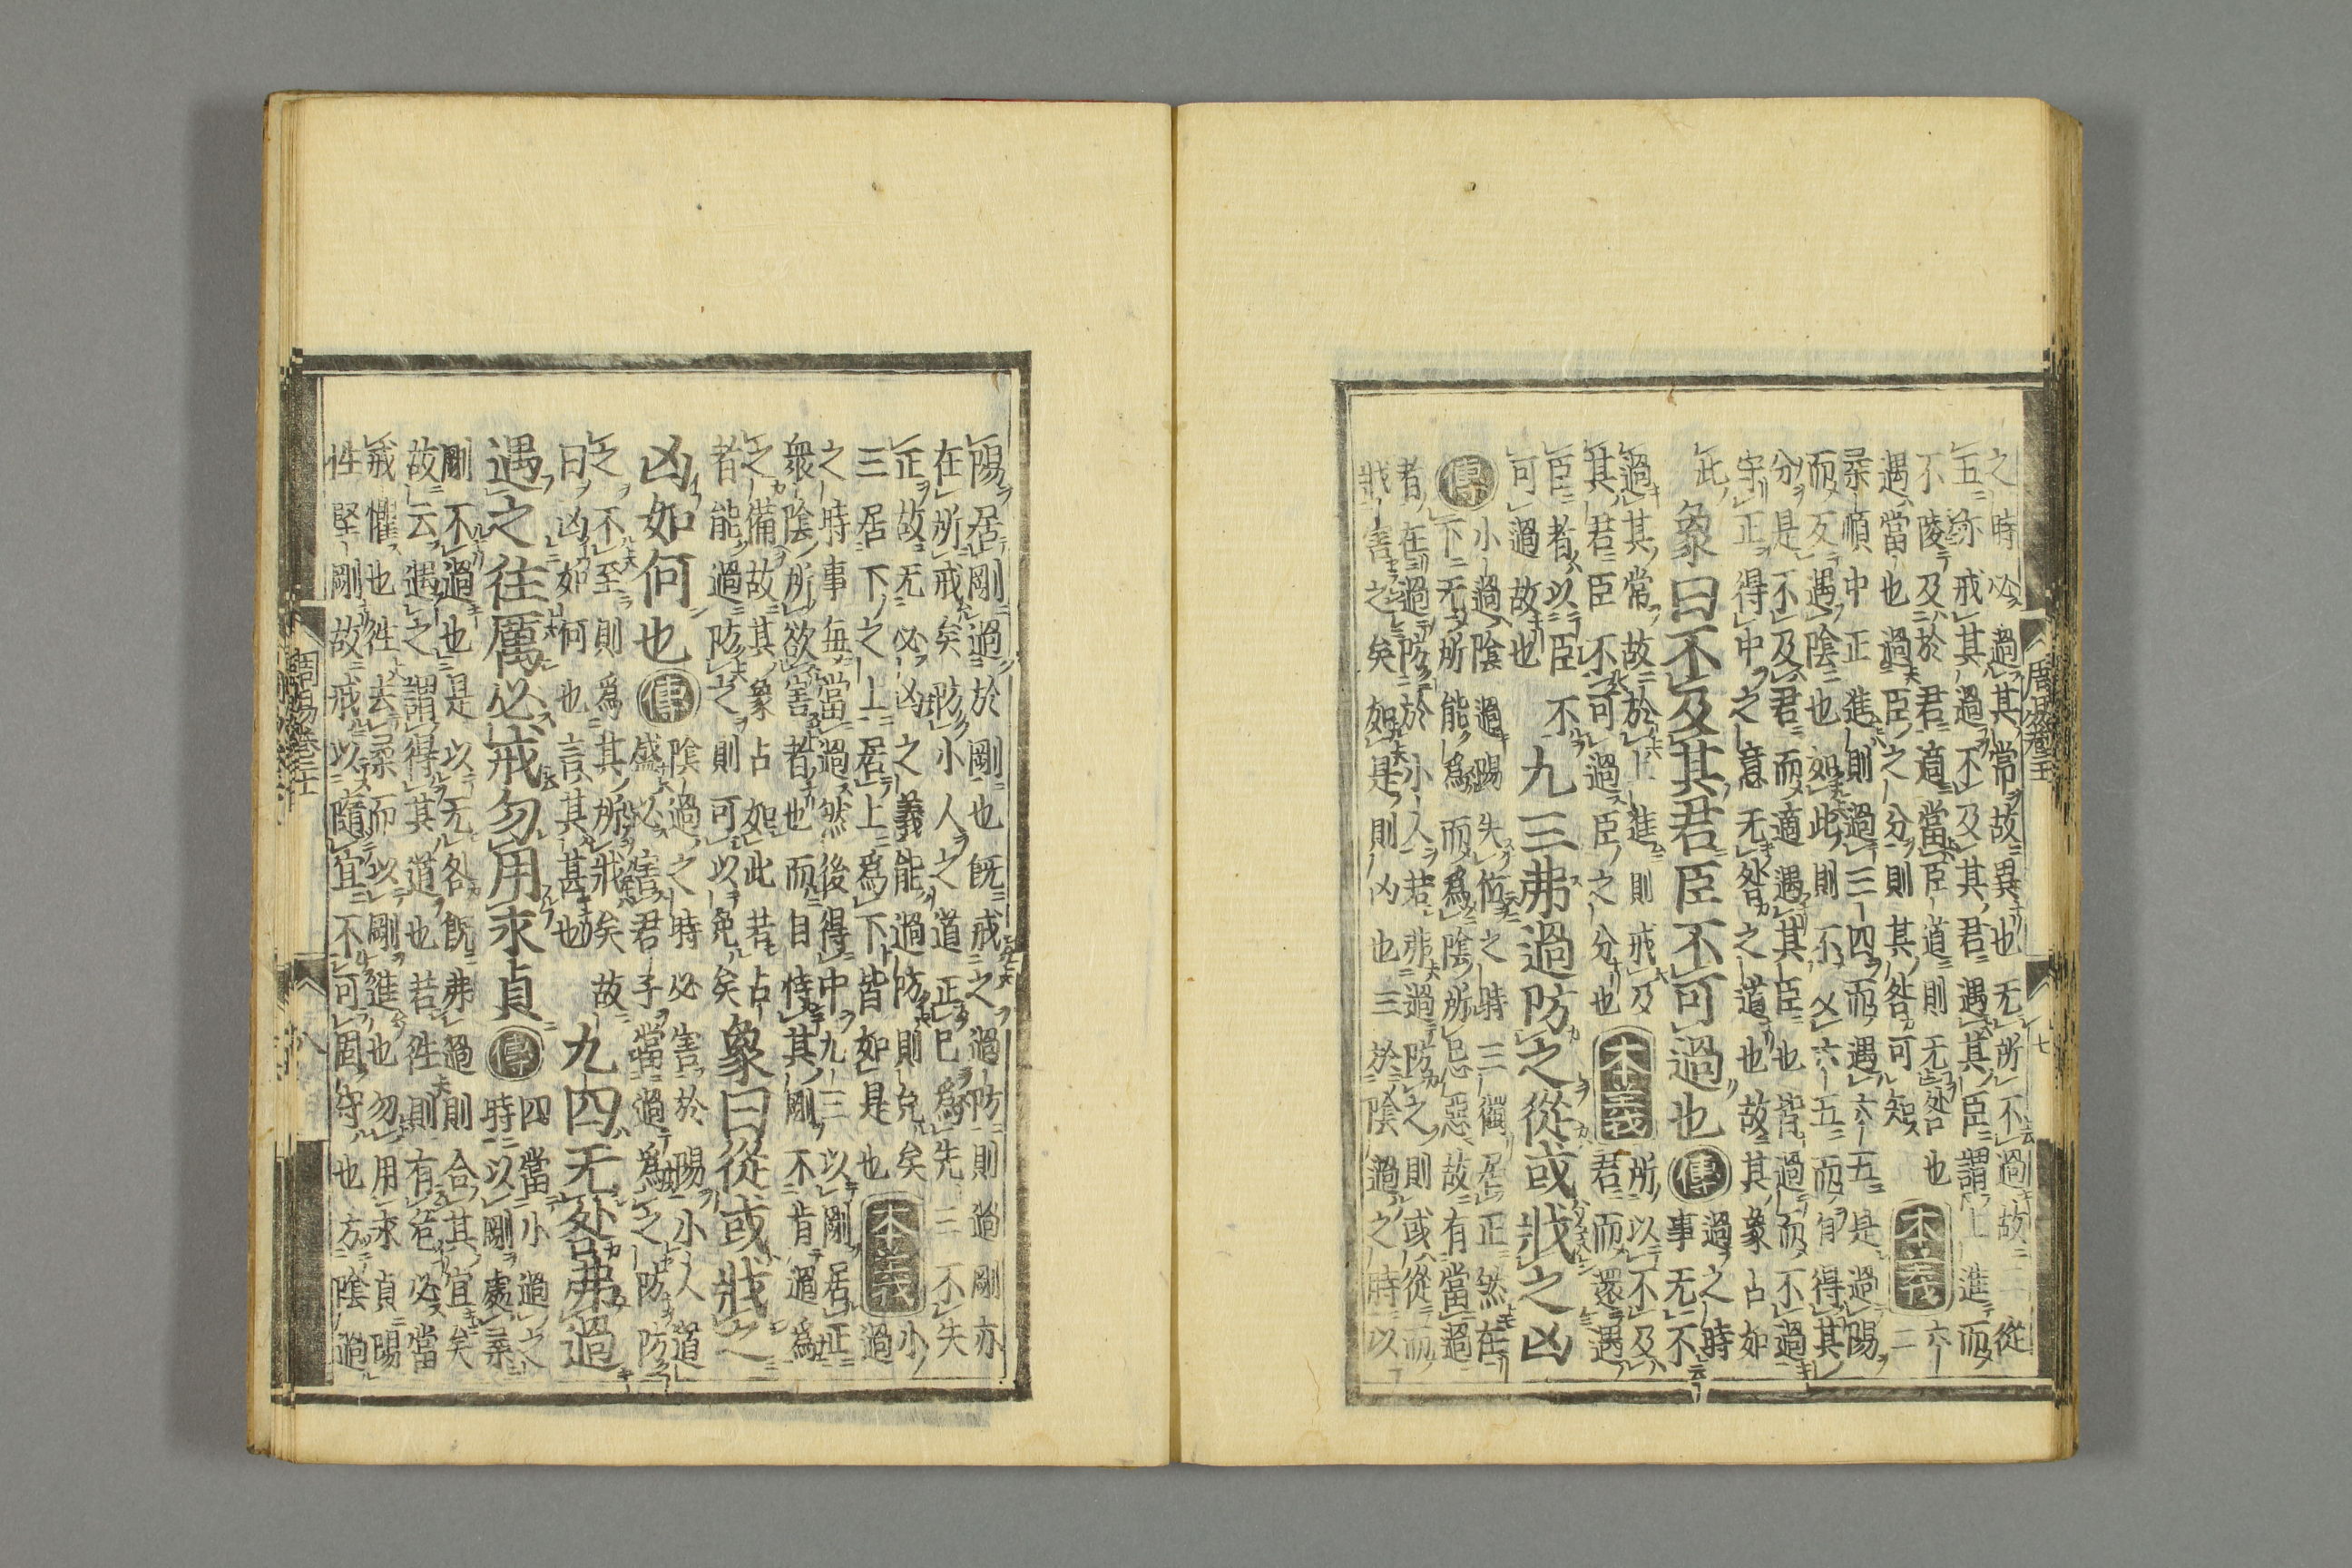 之時必過其常故異也无所不過故二從
五亦戒其過不及其君遇其臣謂上進而
不陵及於君適當臣道則无咎也
遇當也過臣之分則其咎可知
本義
六
二
柔順中正進則過三四而遇六五是過陽
而反遇陰也如此則不及六五而自得其
分是不及君而適遇其臣也皆過而不過
守正得中之意无咎之道也故其象占如
此
象曰不及其君臣不可過也
傳
過之時
事无不
過其常故於上進則戒及
其君臣不可過臣之分也
本義
所以不及
君而還遇
臣者以臣不
可過故也
九三弗過防之從或戕之凶
傳
小過陰過陽失位之時三獨居正然在
下无所能爲而爲陰所忌惡故有當過
者在過防於小人若弗過防之則或從而
戕害之矣如是則凶也三於陰過之時以
周易卷二十
七
陽居剛過於剛也既戒之過防則過剛亦
在所戒矣防小人之道正己爲先三不失
正故无必凶之義能過防則免矣
三居下之上居上爲下皆如是也
本義
小
過
之時事每當過然後得中九三以剛居正
衆陰所欲害者也而自恃其剛不肯過爲
之備故其象占如此若占
者能過防之則可以免矣
象曰從或戕之
凶如何也
傳
陰過之時必害於陽小人道
盛必害君子當過爲之防防
之不至則爲其所戕矣故
曰凶如何也言其甚也
九四无咎弗過
遇之往厲必戒勿用永貞
傳
四當小過之
時以剛處柔
剛不過也是以无咎既弗過則合其宜矣
故云遇之謂得其道也若往則有危必當
戒懼也往去柔而以剛進也勿用永貞陽
性堅剛故戒以隨宜不可固守也方陰過
周易卷二十
八